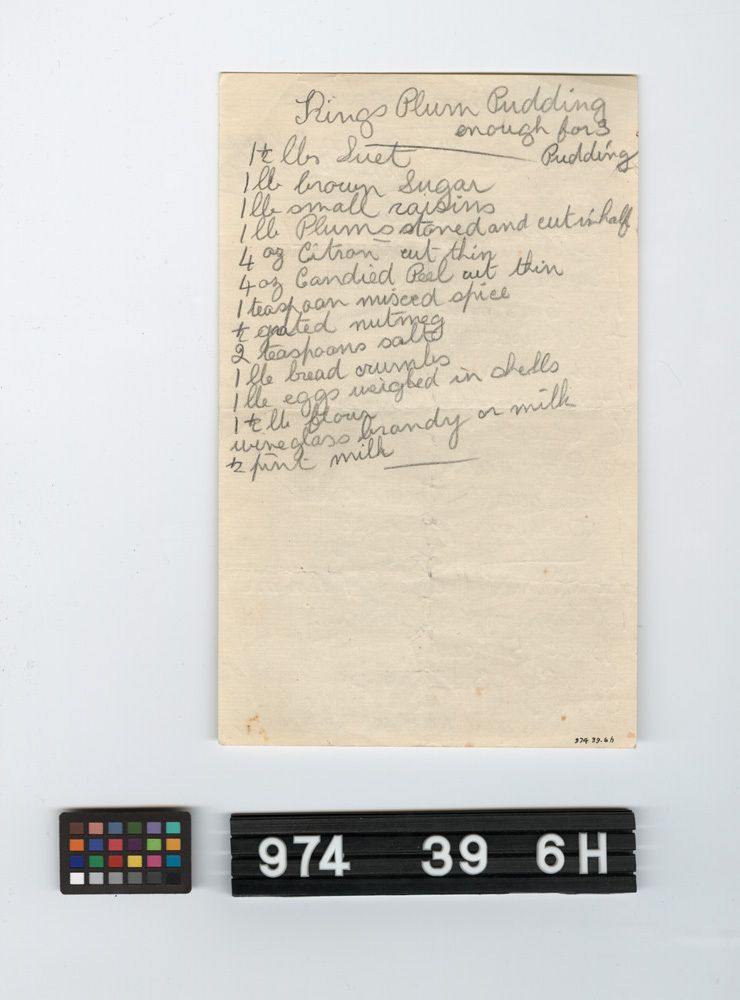 Kings Plum Pudding
enough for 3
Pudding
1½ lbs Suet
1 lb brown Sugar
1 lb small raisins
1 lb Plums stoned and cut in half
4 oz Citron cut thin
4 oz Candied Peel cut thin
1 teaspoon mixed spice
½ grated nutmeg
2 teaspoons salt
1 lb bread crumbs
1 lb eggs weighed in shells
1½ lb flour
wineglass brandy or milk
½ pint milk
974 39.6h
974 39 6H